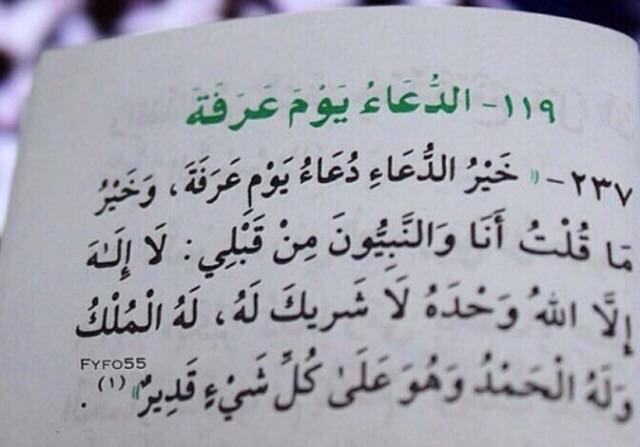 ١١٩- الدُّعَاءُ يَوْمَ عَرَفَةَ
٢٣٧- «خَيْرُ الدُّعَاءِ دُعَاءُ يَوْمِ عَرَفَةَ، وَخَيْرُ
مَا قُلْتُ أَنَا وَالنَّبِيُّونَ مِنْ قَبْلِي: لَا إِلَهَ
إِلَّا اللهُ وَحْدَهُ لَا شَرِيكَ لَهُ، لَهُ الْمُلْكُ
FYFO55
وَلَهُ الْحَمْدُ وَهُوَ عَلَىٰ كُلِّ شَيْءٍ قَدِيرٌ» (١).